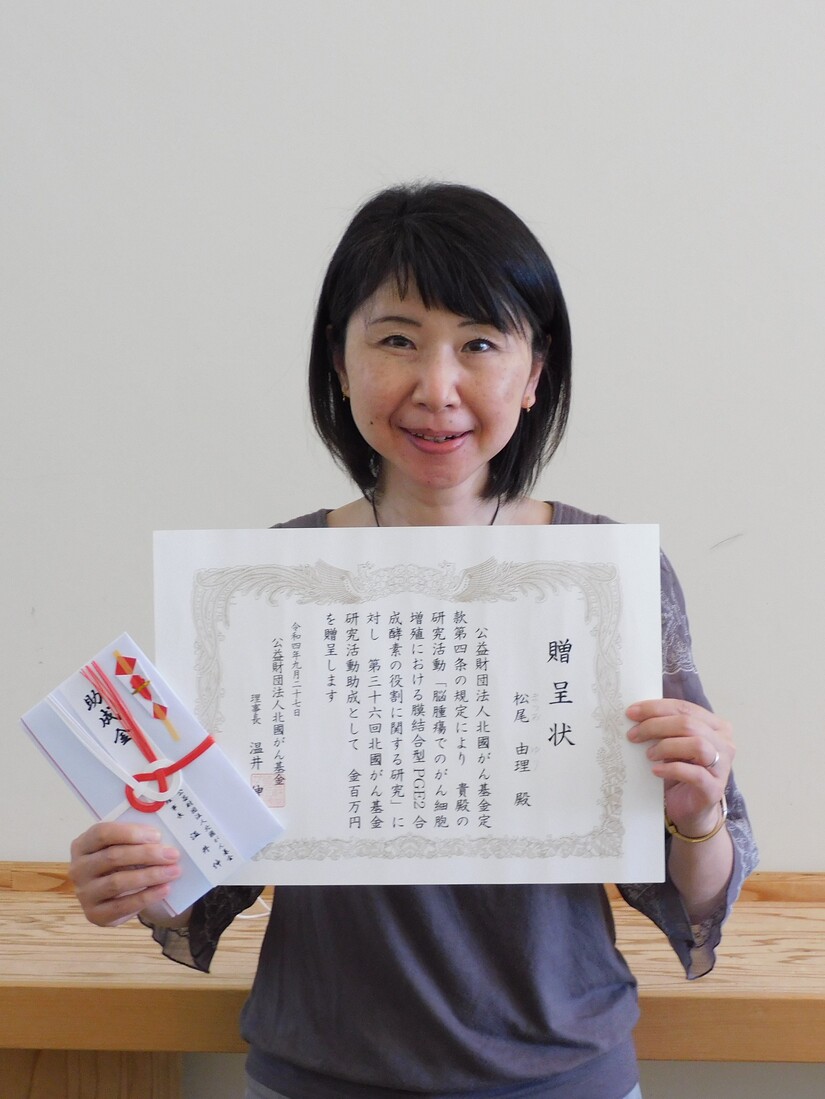 贈呈状
まつ お ゆ り
松尾 由理 殿
公益財団法人北國がん基金定
款第四条の規定により 貴殿の
研究活動「脳腫瘍でのがん細胞
増殖における膜結合型PGE2合
成酵素の役割に関する研究」に
対し 第三十六回北國がん基金
研究活動助成として 金百万円
を贈呈します
令和四年九月二十七日
公益財団法人北國がん基金
理事長 温井 伸
助成金
公益財団法人北國がん基金
理事長 温井 伸